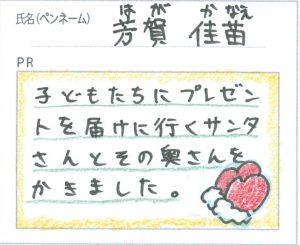 氏名(ペンネーム) 芳賀 佳苗
はが かなえ
PR
子どもたちにプレゼン
トを届けに行くサンタ
さんとその奥さんを
かきました。